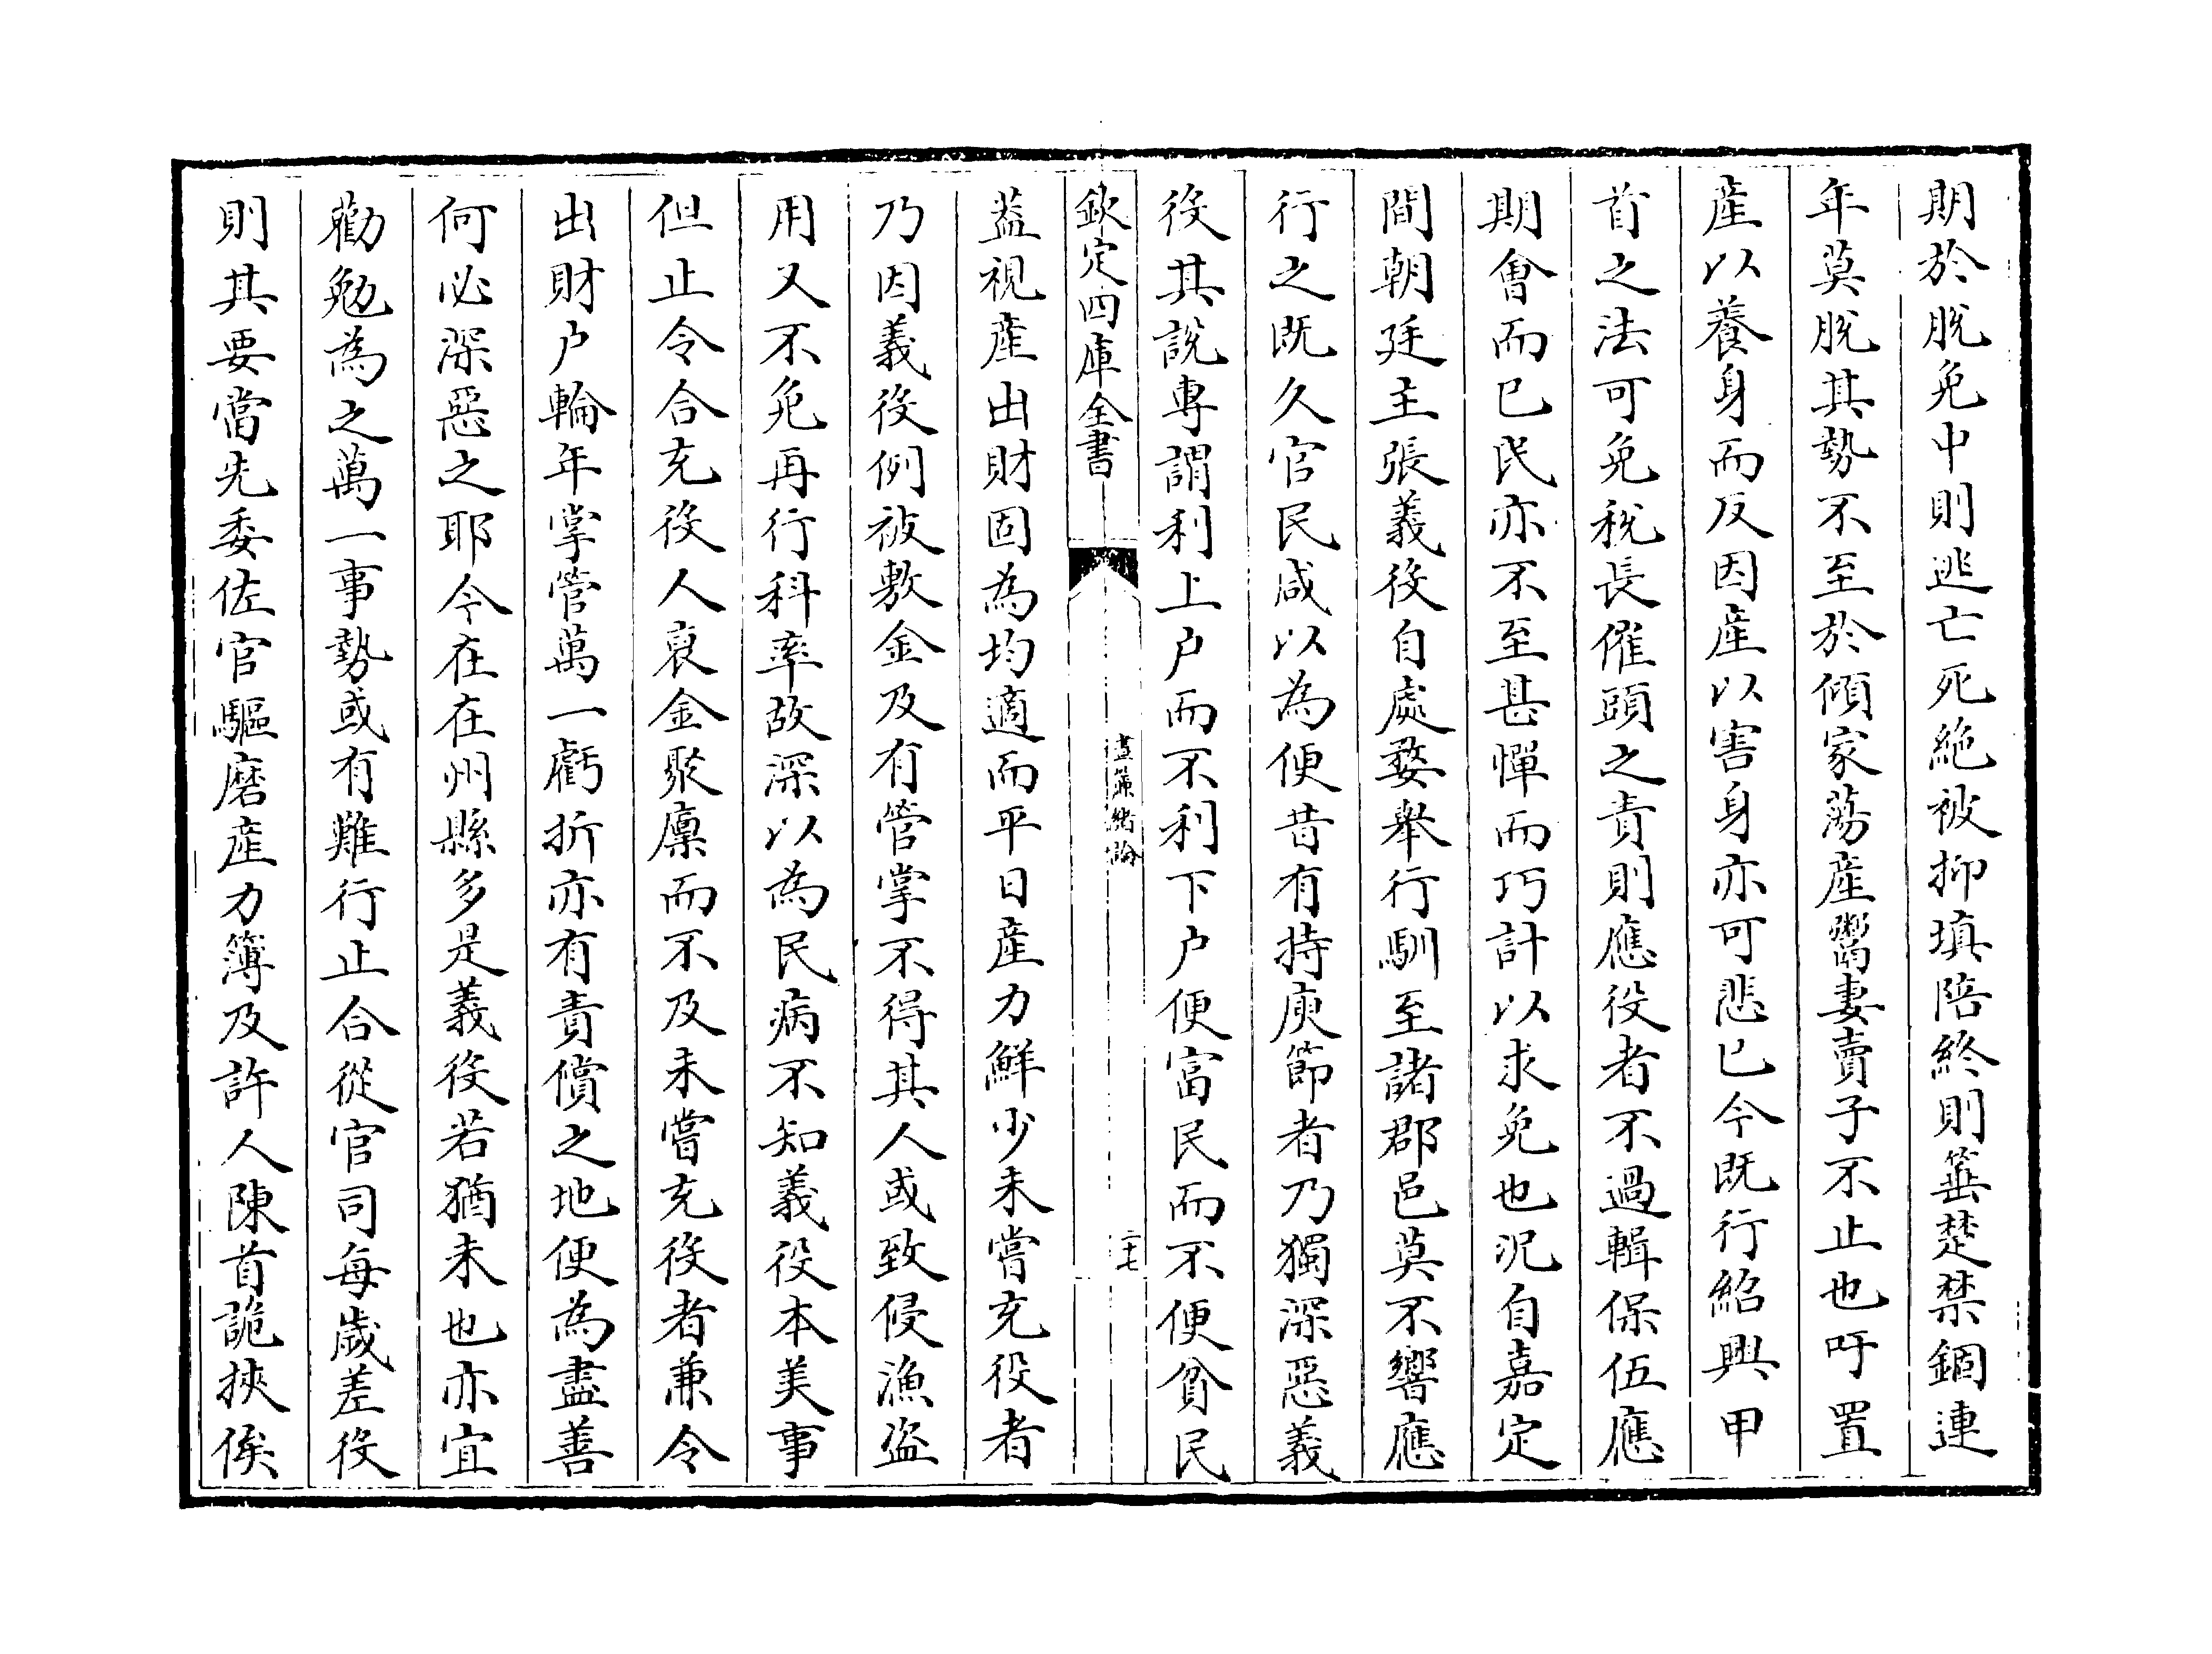 期於脫免中則逃亡死絶被抑填陪終則箠楚禁錮連
年莫脫其勢不至於傾家蕩産鬻妻賣子不止也吁置
産以養身而反因産以害身亦可悲已今既行紹興甲
首之法可免稅長催頭之責則應役者不過輯保伍應
期會而已民亦不至甚憚而巧計以求免也況自嘉定
間朝廷主張義役自處婺舉行馴至諸郡邑莫不響應
行之既久官民咸以為便昔有持庾節者乃獨深惡義
役其說專謂利上户而不利下户便富民而不便貧民
欽定四庫全書
晝簾緒論
二十七
葢視産出財固為均適而平日産力鮮少未嘗充役者
乃因義役例被敷金及有管掌不得其人或致侵漁盗
用又不免再行科率故深以為民病不知義役本美事
但止令合充役人裒金聚廩而不及未嘗充役者兼令
出財户輪年掌管萬一虧折亦有責償之地便為盡善
何必深惡之耶今在在州縣多是義役若猶未也亦宜
勸勉為之萬一事勢或有難行止合從官司每歲差役
則其要當先委佐官驅磨産力簿及許人陳首詭挾俟